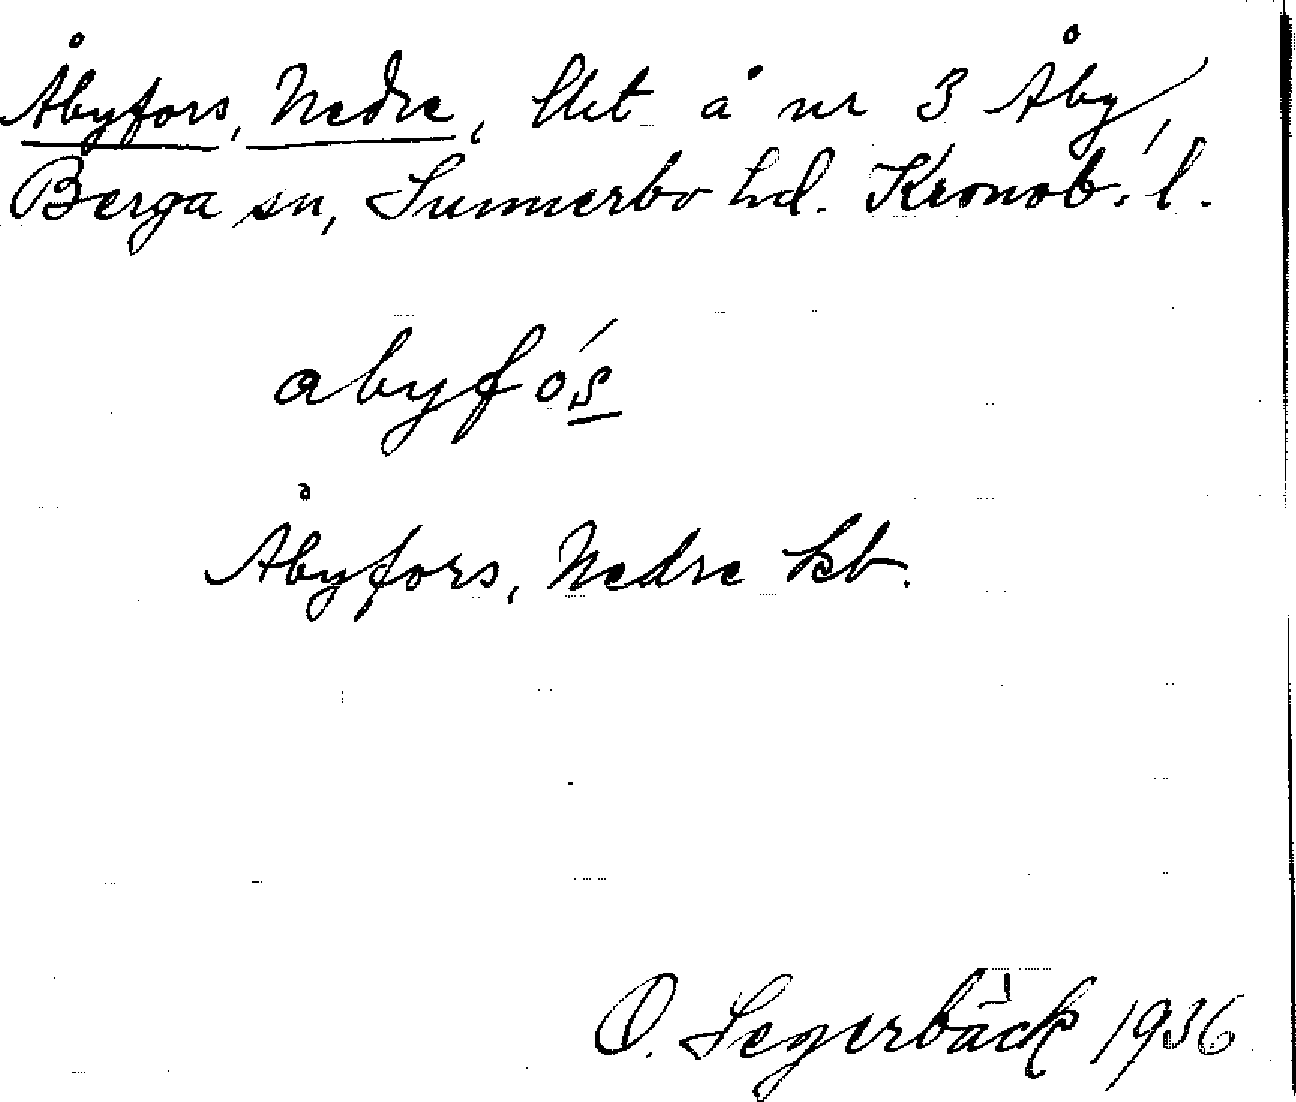 Åbyfors, Nedre, lht å nr 3 Åby,
Berga sn, Sunnerbo hd. Kronob. l.
abyfós
Åbyfors, Nedre kb.
O. Segerbäck 1936